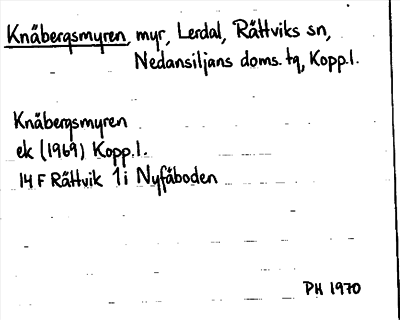 Knäbergsmyren, myr, Lerdal, Rättviks sn,
Nedansiljans doms.tg, Kopp.l.
Knäbergsmyren
ek (1969) Kopp.l.
14 F Rättvik 1i Nyfäboden
PH 1970